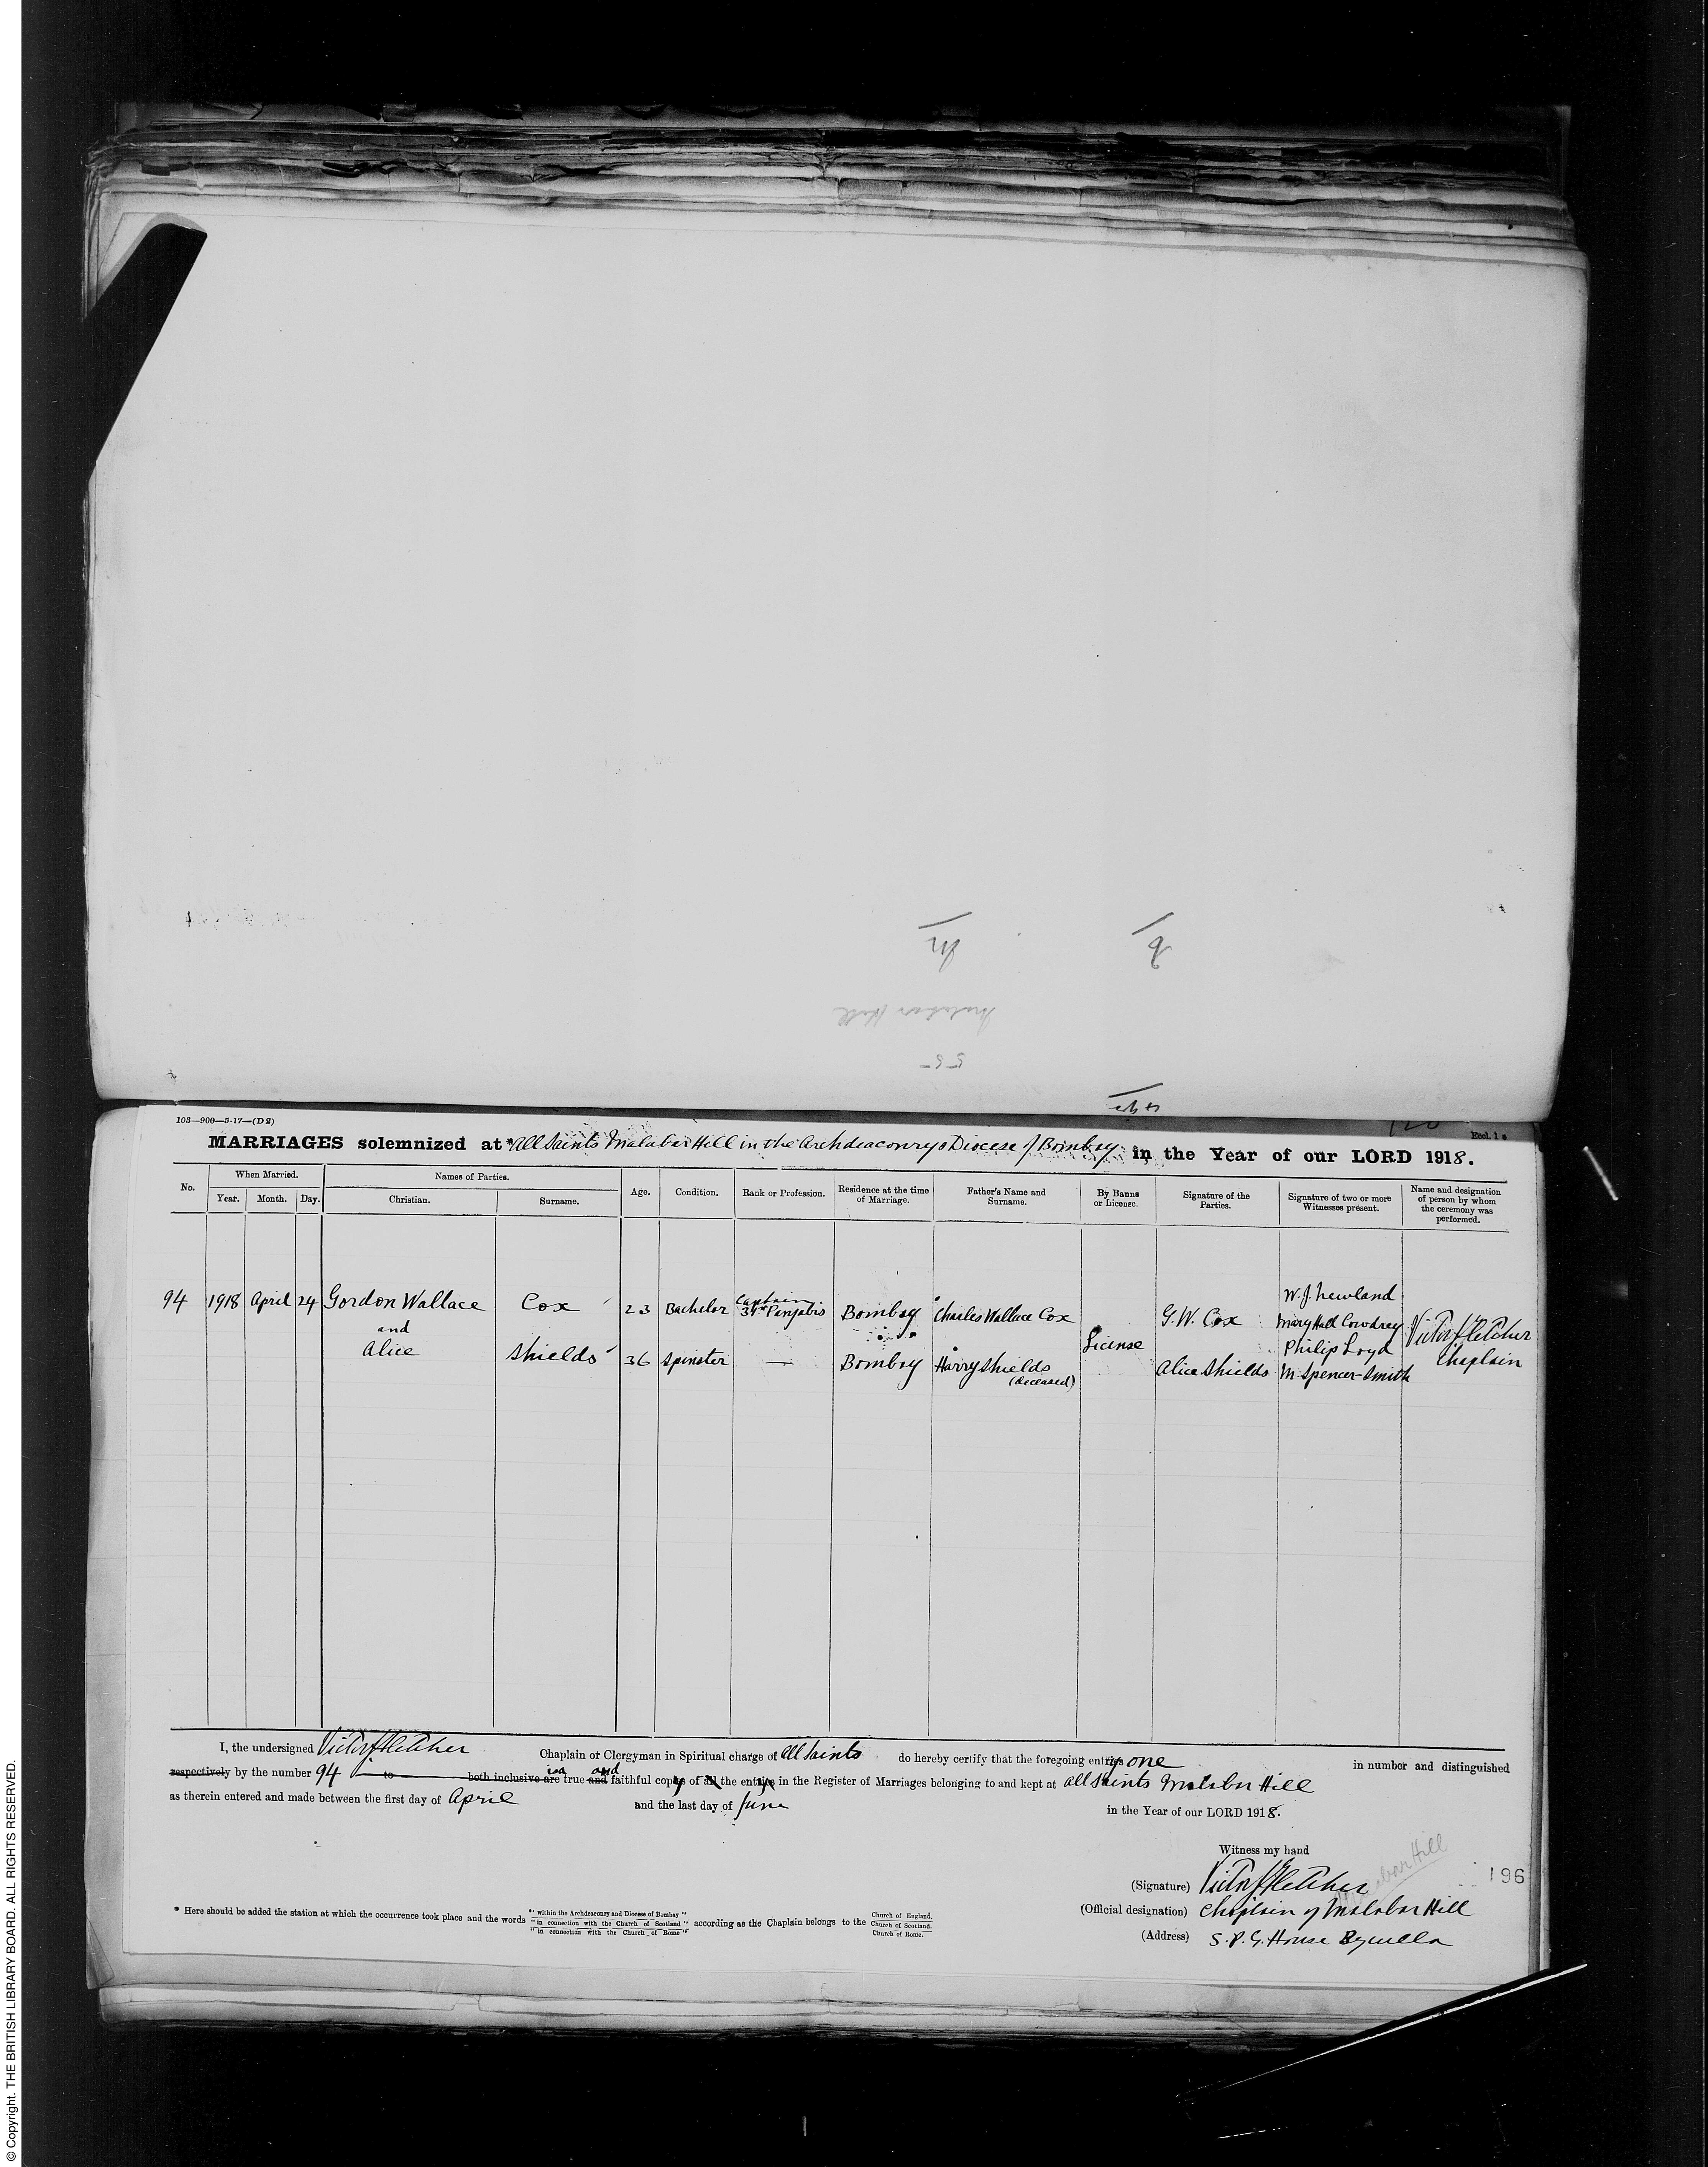 Malabar Hill
55
103—900—5-17—(D 2)
Eccl. 1 a
MARRIAGES solemnized at * All Saints Malabar Hill in the Archdeaconry & Diocese of Bombay in the Year of our LORD 1918.
No. When Married. Names of Parties. Age. Condition. Rank or Profession. Residence at the time of Marriage. Father's Name and Surname. By Banns or License. Signature of the Parties. Signature of two or more Witnesses present. Name and designation of person by whom the ceremony was performed.
Year. Month. Day. Christian. Surname.
94 1918 April 24 Gordon Wallace Cox 23 Bachelor Captain Punjabis Bombay Charles Wallace Cox G. W. Cox W. J. Newland
and License Mary Hall Cowdrey Victor Fletcher
Alice Shields 36 Spinster — Bombay Harry Shields Alice Shields Philip Loyd Chaplain
(deceased) M Spencer-Smith
I, the undersigned Victor Fletcher Chaplain or Clergyman in Spiritual charge of All Saints do hereby certify that the foregoing entry one in number and distinguished
respectively by the number 94 to both inclusive are is a true and and faithful copy of all the entries in the Register of Marriages belonging to and kept at All Saints Malabar Hill
as therein entered and made between the first day of April and the last day of June in the Year of our LORD 1918.
Witness my hand
Malabar Hill
(Signature) Victor Fletcher
196
(Official designation) Chaplain of Malabar Hill
(Address) S. P. G. House Byculla
* Here should be added the station at which the occurrence took place and the words " within the Archdeaconry and Diocese of Bombay " " in connection with the Church of Scotland " " in connection with the Church of Rome " according as the Chaplain belongs to the Church of England. Church of Scotland. Church of Rome.
© Copyright. THE BRITISH LIBRARY BOARD. ALL RIGHTS RESERVED.